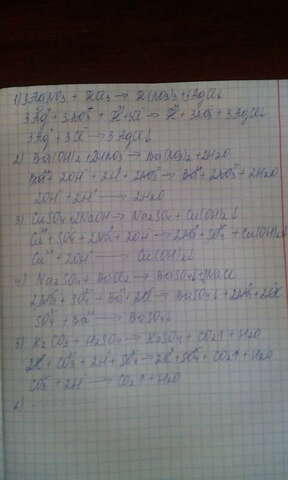 1) 3AgNO3 + FeCl3 → Fe(NO3)3 + 3AgCl↓
3Ag⁺ + 3NO3⁻ + Fe³⁺ + 3Cl⁻ → Fe³⁺ + 3NO3⁻ + 3AgCl↓
3Ag⁺ + 3Cl⁻ → 3AgCl↓
2) Ba(OH)2 + 2HNO3 → Ba(NO3)2 + 2H2O
Ba²⁺ + 2OH⁻ + 2H⁺ + 2NO3⁻ → Ba²⁺ + 2NO3⁻ + 2H2O
2OH⁻ + 2H⁺ → 2H2O
3) CuSO4 + 2NaOH → Na2SO4 + Cu(OH)2↓
Cu²⁺ + SO4²⁻ + 2Na⁺ + 2OH⁻ → 2Na⁺ + SO4²⁻ + Cu(OH)2↓
Cu²⁺ + 2OH⁻ → Cu(OH)2↓
4) Na2SO4 + BaCl2 → BaSO4↓ + 2NaCl
2Na⁺ + SO4²⁻ + Ba²⁺ + 2Cl⁻ → BaSO4↓ + 2Na⁺ + 2Cl⁻
SO4²⁻ + Ba²⁺ → BaSO4↓
5) K2CO3 + H2SO4 → K2SO4 + CO2↑ + H2O
2K⁺ + CO3²⁻ + 2H⁺ + SO4²⁻ → 2K⁺ + SO4²⁻ + CO2↑ + H2O
CO3²⁻ + 2H⁺ → CO2↑ + H2O
6)